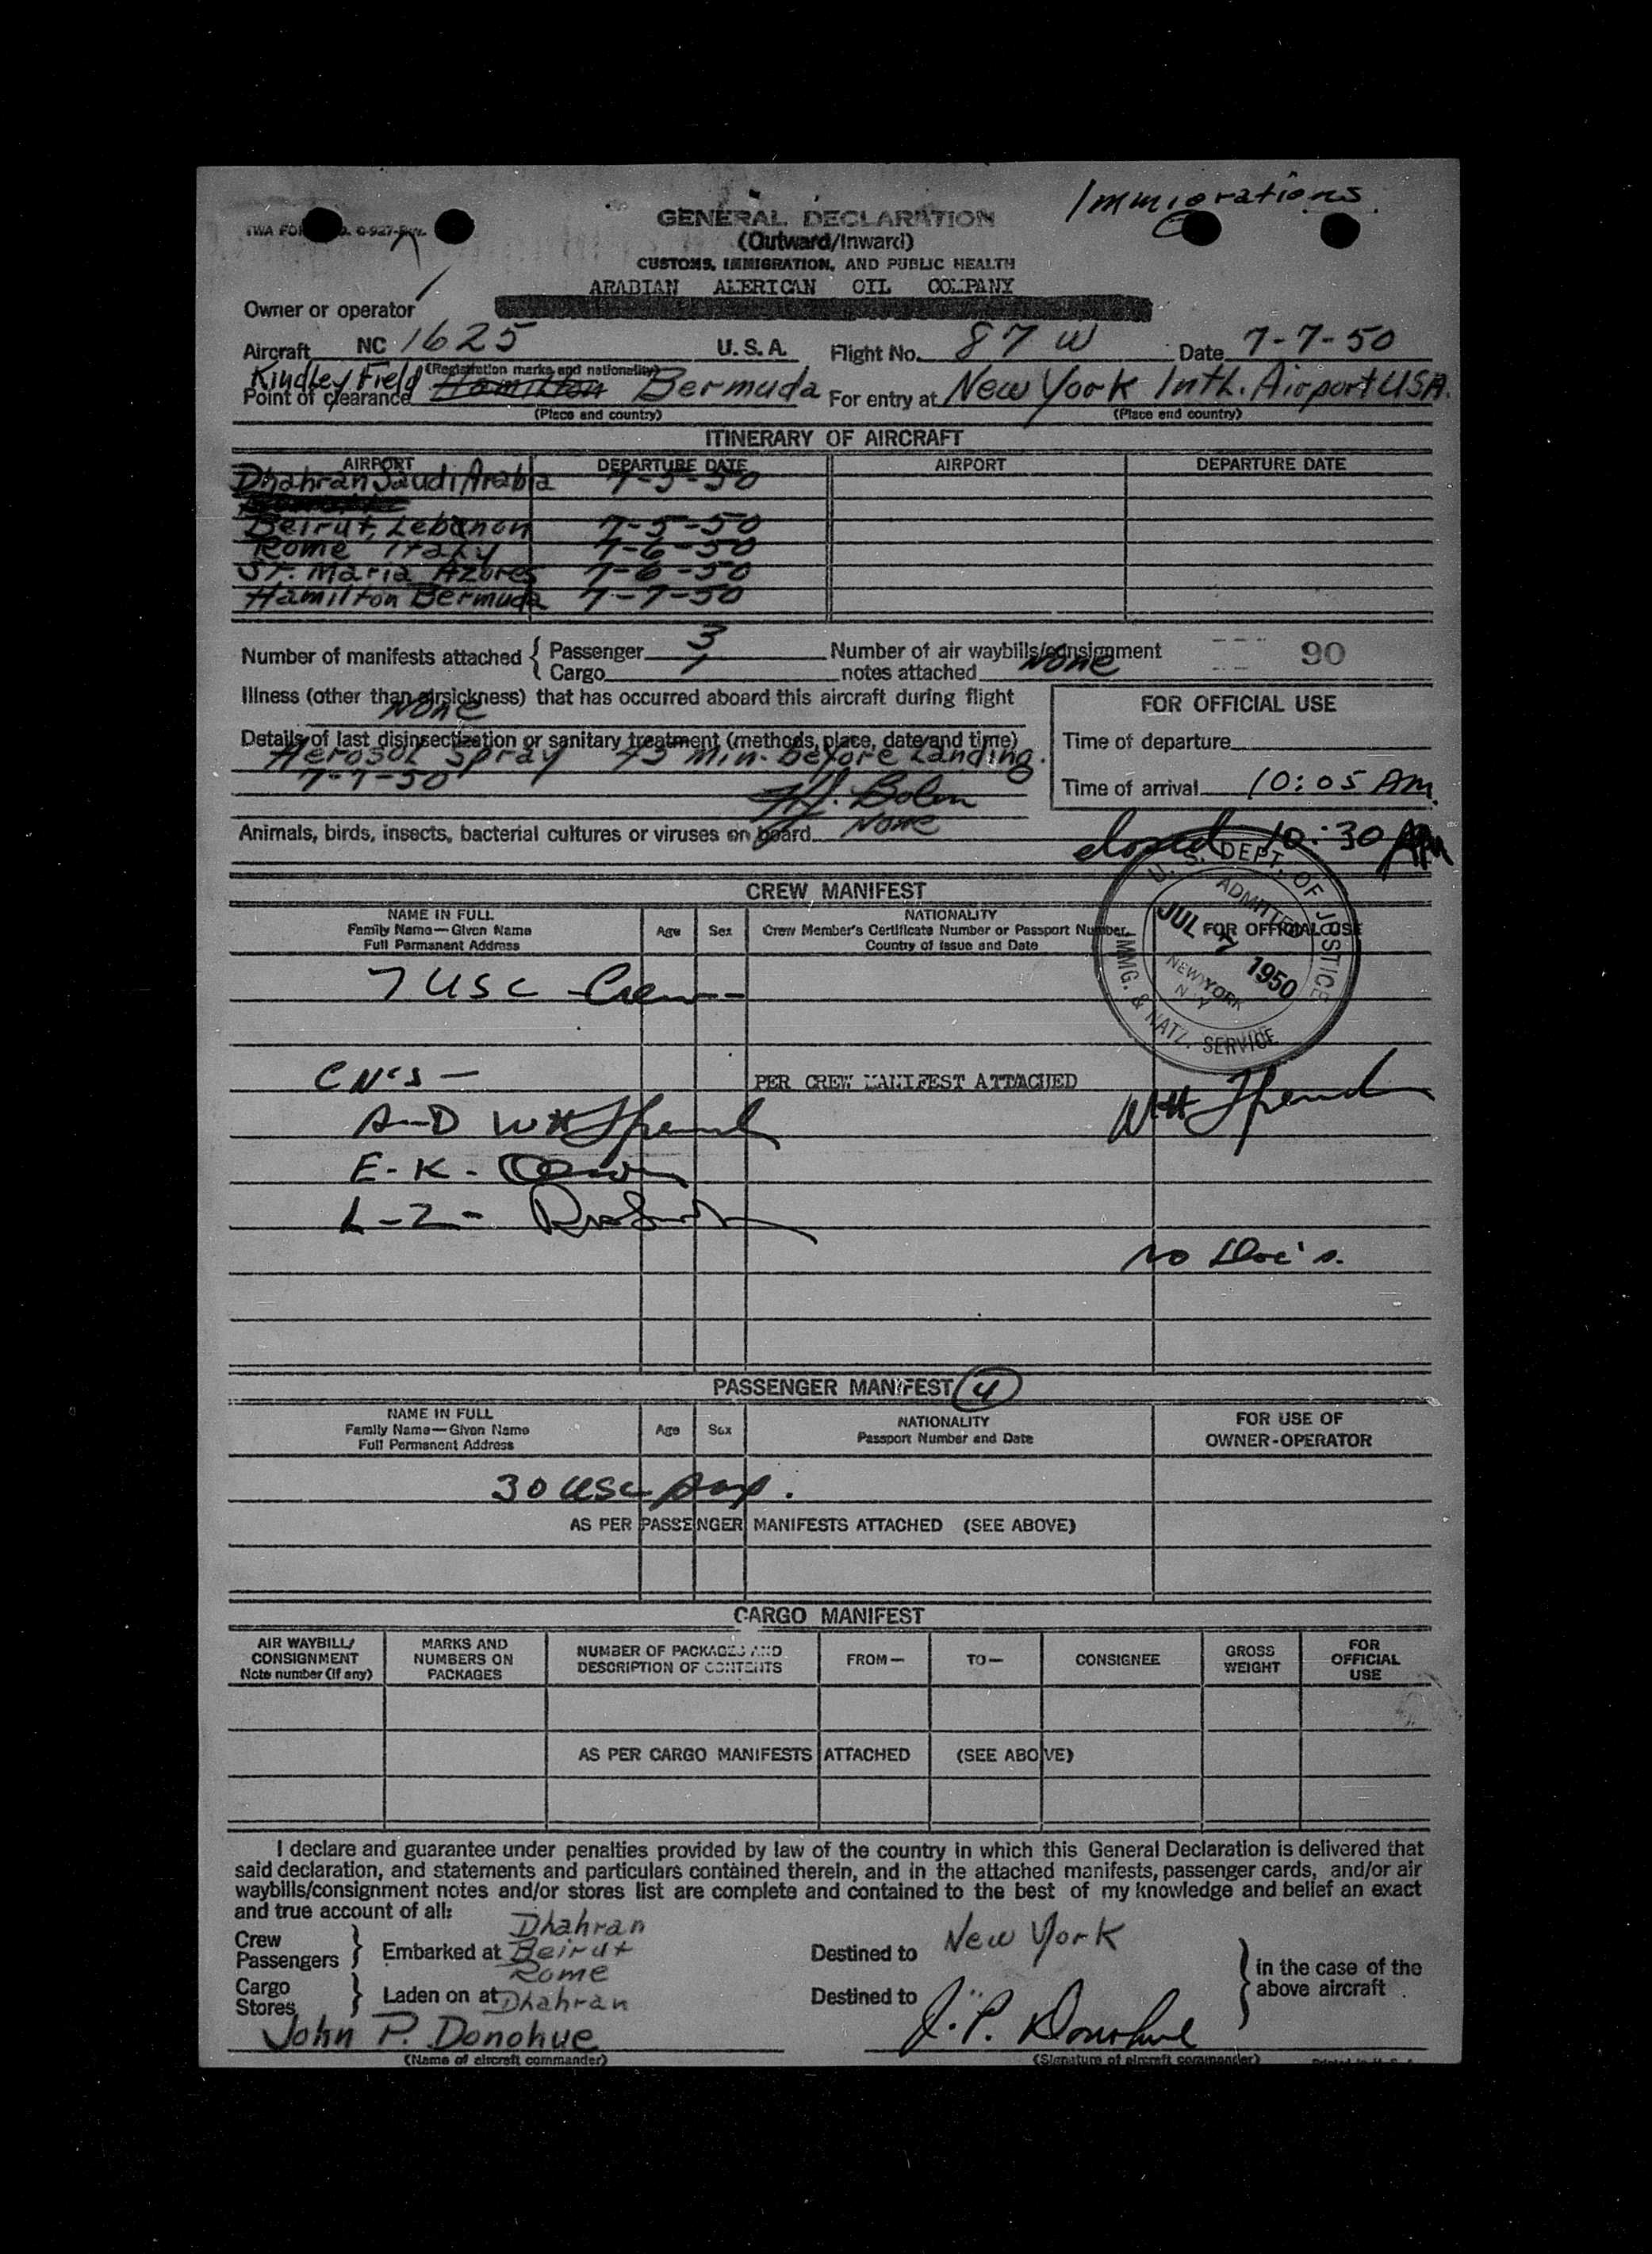 Immigrations
GENERAL DECLARATION
(Outward/Inward)
CUSTOMS, IMMIGRATION, AND PUBLIC HEALTH
ARABIAN AMERICAN OIL COMPANY
Owner or operator
Aircraft NC 1625 U.S.A. Flight No. 87 W Date 7-7-50
(Registration marks and nationality)
Kindley Field
Point of clearance Hamilton Bermuda For entry at New York Intl. Airport USA.
(Place and country) (Place and country)
ITINERARY OF AIRCRAFT
AIRPORT DEPARTURE DATE AIRPORT DEPARTURE DATE
Dhahran Saudi Arabia 7-5-50
Beirut, Lebanon 7-5-50
Rome Italy 7-6-50
St. Maria Azores 7-6-50
Hamilton Bermuda 7-7-50
Number of manifests attached { Passenger 3 Number of air waybills/consignment 90
Cargo 1 notes attached None
Illness (other than airsickness) that has occurred aboard this aircraft during flight
None
FOR OFFICIAL USE
Details of last disinsectization or sanitary treatment (methods, place, date and time)
Aerosol Spray 45 min. before Landing.
7-7-50
Time of departure
Time of arrival 10:05 AM.
Bolen
Animals, birds, insects, bacterial cultures or viruses on board None
closed 10:30 AM
CREW MANIFEST
NAME IN FULL
Family Name—Given Name
Full Permanent Address
Age Sex
NATIONALITY
Crew Member's Certificate Number or Passport Number
Country of Issue and Date
FOR OFFICIAL USE
U.S. DEPT. OF JUSTICE
ADMITTED
JUL 7 1950
NEW YORK
N.Y.
IMMG. & NATZ. SERVICE
7 USC Crew--
PER CREW MANIFEST ATTACHED
A-D WH
E-K-
L-Z-
No Doc's.
PASSENGER MANIFEST 4
NAME IN FULL
Family Name—Given Name
Full Permanent Address
Age Sex
NATIONALITY
Passport Number and Date
FOR USE OF
OWNER-OPERATOR
30 USC
AS PER PASSENGER MANIFESTS ATTACHED (SEE ABOVE)
CARGO MANIFEST
AIR WAYBILL/
CONSIGNMENT
Note number (if any)
MARKS AND
NUMBERS ON
PACKAGES
NUMBER OF PACKAGES AND
DESCRIPTION OF CONTENTS
FROM—
TO—
CONSIGNEE
GROSS
WEIGHT
FOR
OFFICIAL
USE
AS PER CARGO MANIFESTS ATTACHED (SEE ABOVE)
I declare and guarantee under penalties provided by law of the country in which this General Declaration is delivered that
said declaration, and statements and particulars contained therein, and in the attached manifests, passenger cards, and/or air
waybills/consignment notes and/or stores list are complete and contained to the best of my knowledge and belief an exact
and true account of all:
Crew
Passengers } Embarked at Dhahran
Beirut
Rome
Destined to New York
Cargo
Stores } Laden on at Dhahran
Destined to
} in the case of the
above aircraft
John P. Donohue J. P. Donohue
(Name of aircraft commander) (Signature of aircraft commander)